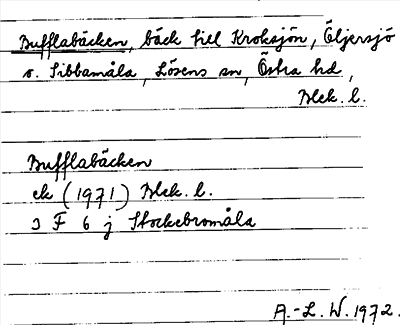 Bufflabäcken, bäck till Kroksjön, Öljersjö
o. Sibbamåla, Lösens sn, Östra hd,
Blek. l.
Bufflabäcken
ek (1971) Blek. l.
3 F 6 j Stockebromåla
A.-L. W. 1972.